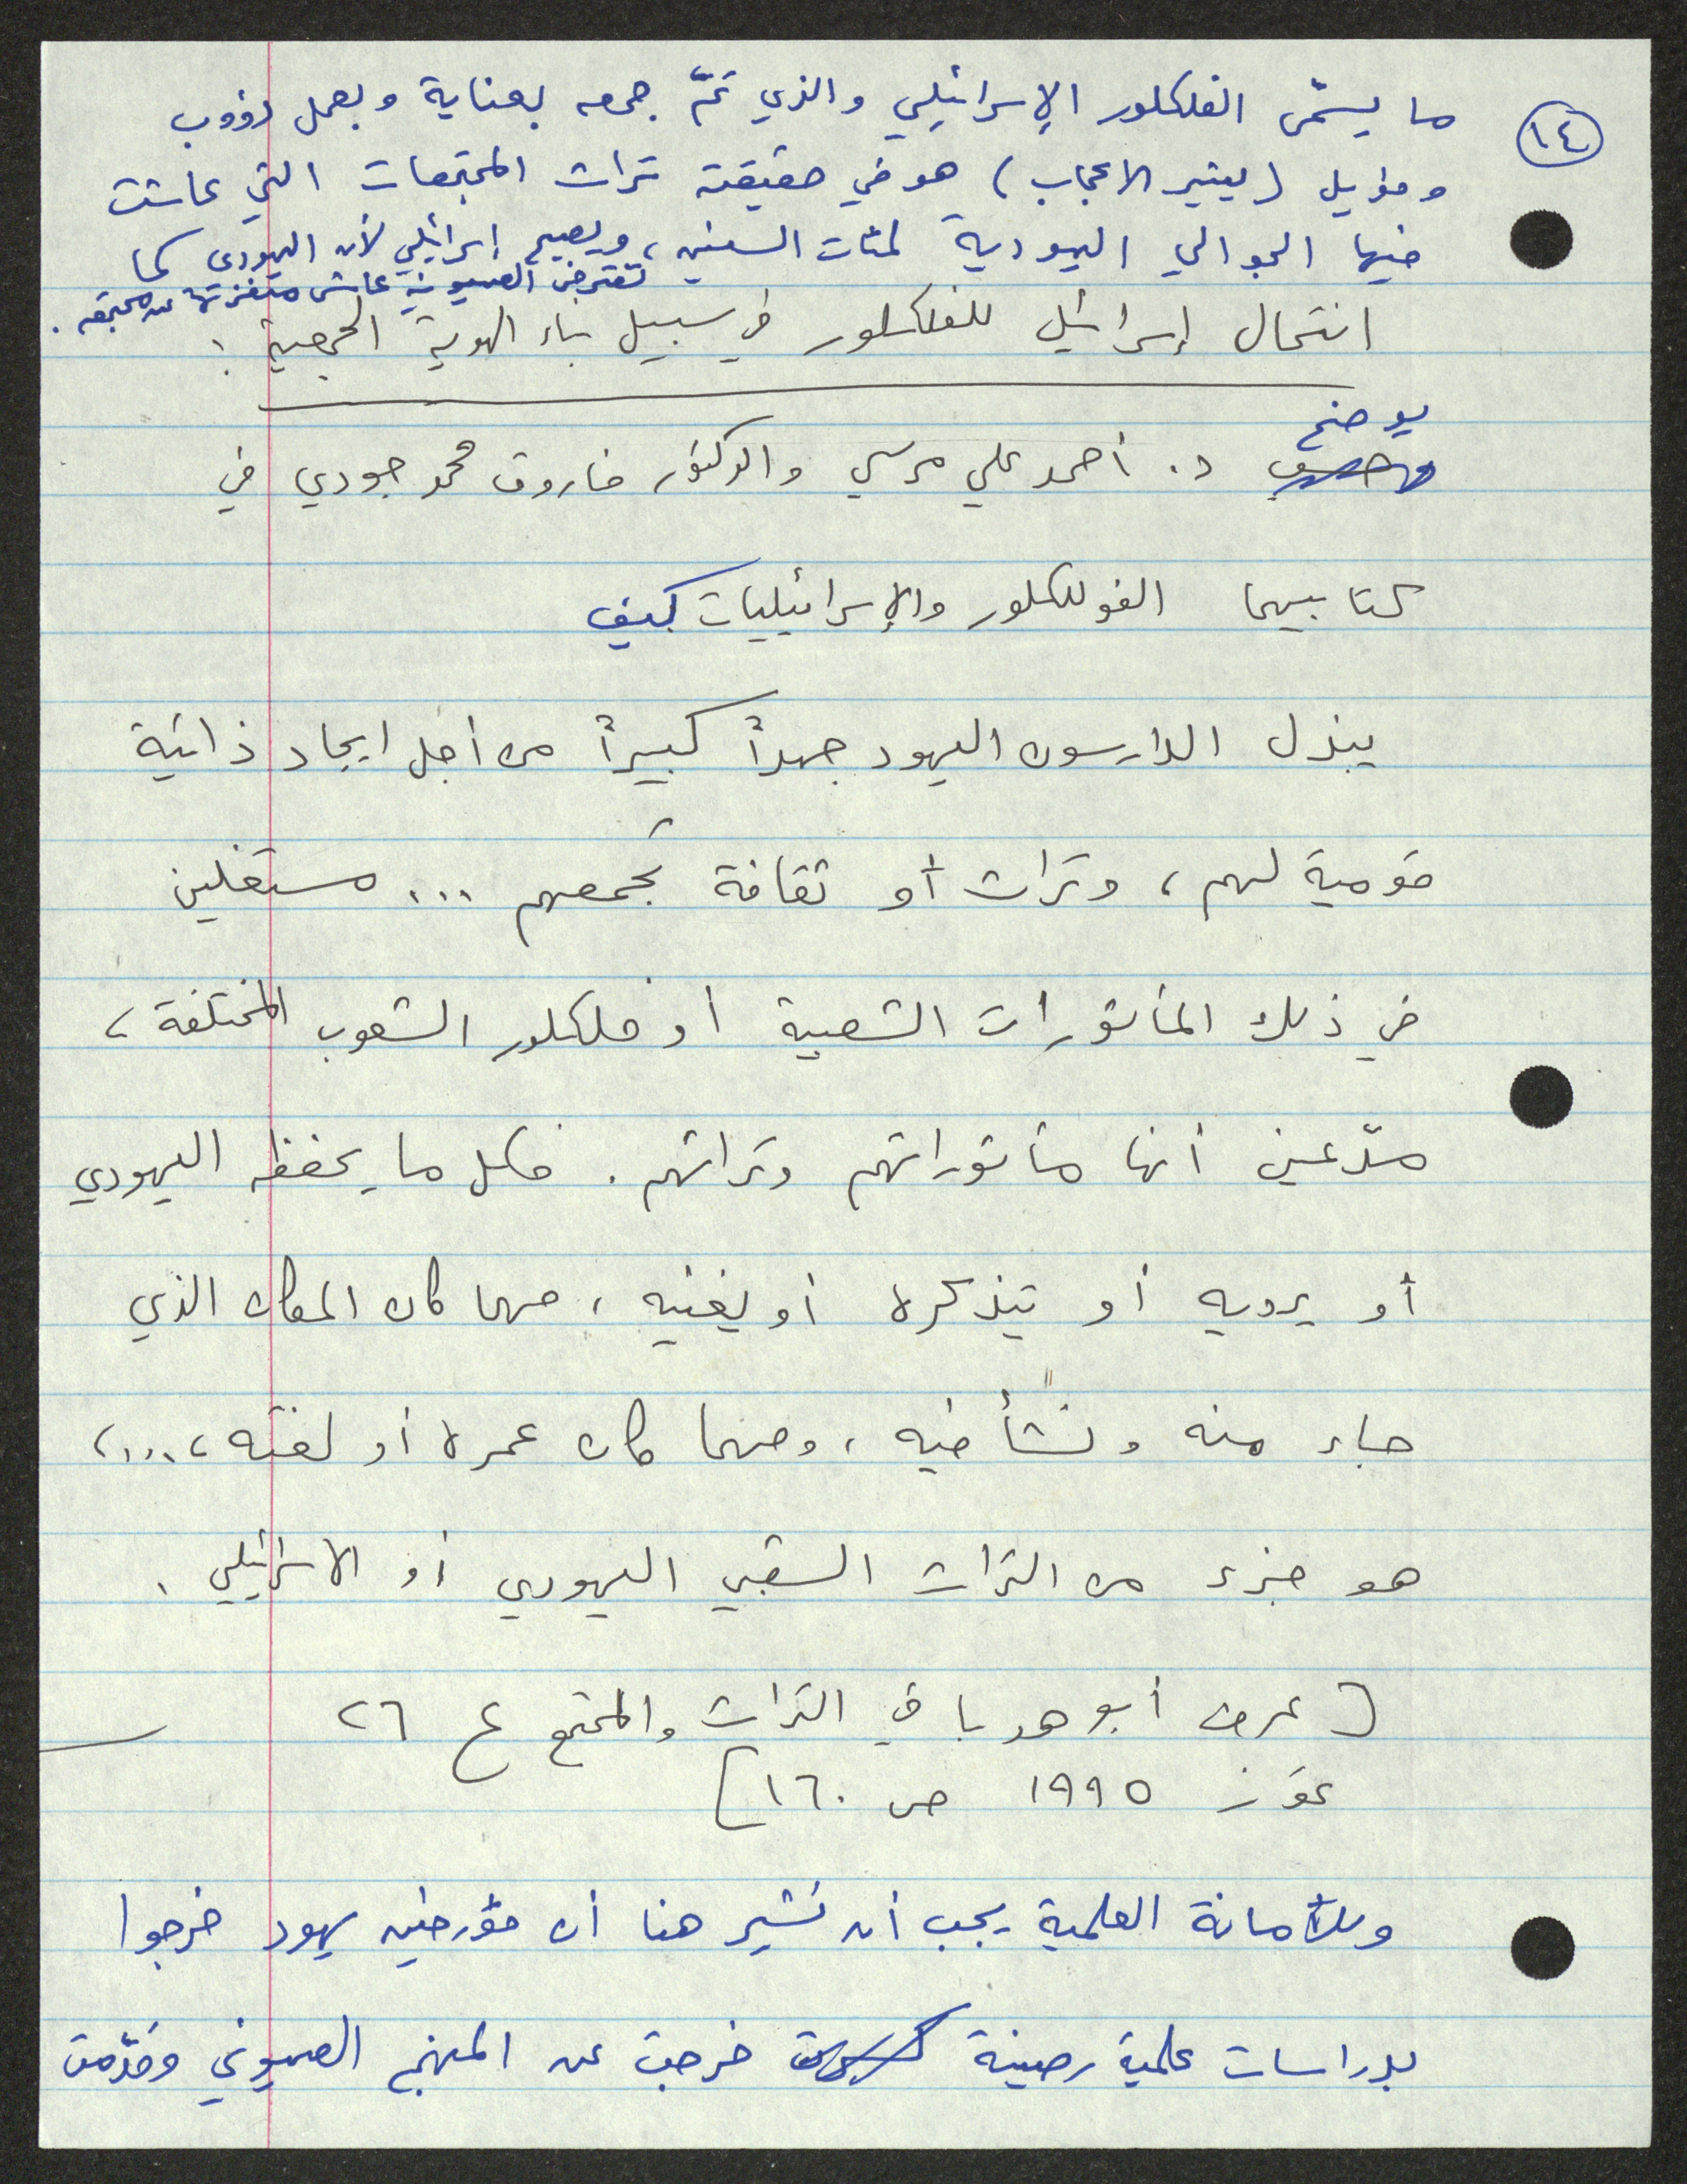 ١٤
ما يسمّى الفلكلور الإسرائيلي والذي تمّ جمعه بعناية وبعمل دؤوب
وطويل (يثير الاعجاب) هو في حقيقته تراث المجتمعات التي عاشت
فيها الجوالي اليهودية لمئات السنين، ويصبح إسرائيلي لأن اليهودى كما
تفترض الصهيونية عاش منعزلاً عن مجتمعه.
انتحال إسرائيل للفلكلور في سبيل بناء الهوية الجمعية:
يوضح
د. أحمد علي مرسي والدكتور فاروق محمد جودي في
كتابيهما الفولكلور والإسرائيليات كيف
يبذل الدارسون اليهود جهداً كبيراً من أجل ايجاد ذاتية
قومية لهم، وتراث أو ثقافة تجمعهم ... مستغلين
في ذلك المأثورات الشعبية أو فلكلور الشعوب المختلفة،
مدّعين أنها مأثوراتهم وتراثهم. فكل ما يحفظه اليهودي
أو يرويه أو يتذكره أو يغنيه، مهما كان المكان الذي
جاء منه ونشأ فيه، ومهما كان عمره أو لغته،...،
هو جزء من التراث الشعبي اليهودي أو الاسرائيلي.
[عمرف أبو هدبا في التراث والمجتمع ع ٢٦
تموز ١٩٩٥ ص ١٦٠]
وللأمانة العلمية يجب أن نشير هنا أن مؤرخين يهود خرجوا
بدراسات علمية رصينة خرجت عن المنهج الصهيوني وقدّمت